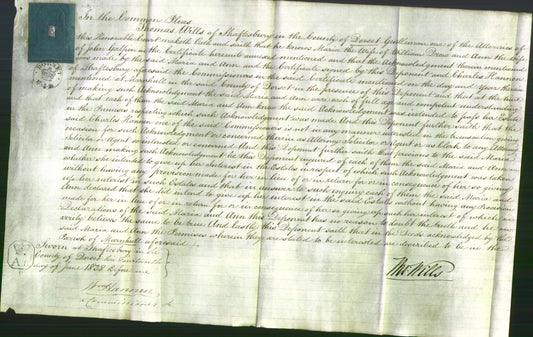 In the Common Pleas
Thomas Wills of Shaftesbury in the County of Dorset Gentleman, one of the Attornies of
this Honorable Court maketh Oath and saith that he knows Maria the Wife of William Drew and Ann the Wife
of John Galpin in the Certificate hereunto annexed mentioned and that the Acknowledgment therein mentioned
was made by the said Maria and Ann and the Certificate signed by this Deponent and Charles Hannen
of Shaftesbury aforesaid the Commissioners in the said Certificate mentioned on the day and Year therein
mentioned at Marnhull in the said County of Dorset in the presence of this Deponent and that at the time
of making such Acknowledgment the said Maria and Ann were each of full age and competent understanding
and that each of them the said Maria and Ann knew the said Acknowledgment was intended to pass her Estate
in the Premises respecting which such Acknowledgment was made And this Deponent further saith that the
said Charles Hannen one of the said Commissioners is not in any manner interested in the transaction giving
occasion for such Acknowledgment or concerned therein as Attorney Solicitor or Agent or as Clerk to any Attorney
Solicitor or Agent so interested or concerned And this Deponent further saith that previous to the said Maria
and Ann making such Acknowledgment he this Deponent inquired of each of them the said Maria and Ann
whether she intended to give up her interest in the Estates in respect of which such Acknowledgment was taken
without having any provision made for her in lieu of or in return for or in consequence of her so giving
up her interest in such Estates and that in answer to such inquiry each of them the said Maria and
Ann declared that she did intend to give up her interest in the said Estates without having any provision
made for her in lieu of or in return for or in consequence of her so giving up such her interest of which
Declarations of the said Maria and Ann this Deponent has no reason to doubt the truth and he
verily believes the same to be true And lastly this Deponent saith that in the Deed acknowledged by the
said Maria and Ann the Premises wherein they are stated to be interested are described to be in the
Parish of Marnhull aforesaid
Sworn at Shaftesbury in the
County of Dorset
day of June 1838 before me
Wm Hannen
a Commissioner &c
Tho Wills